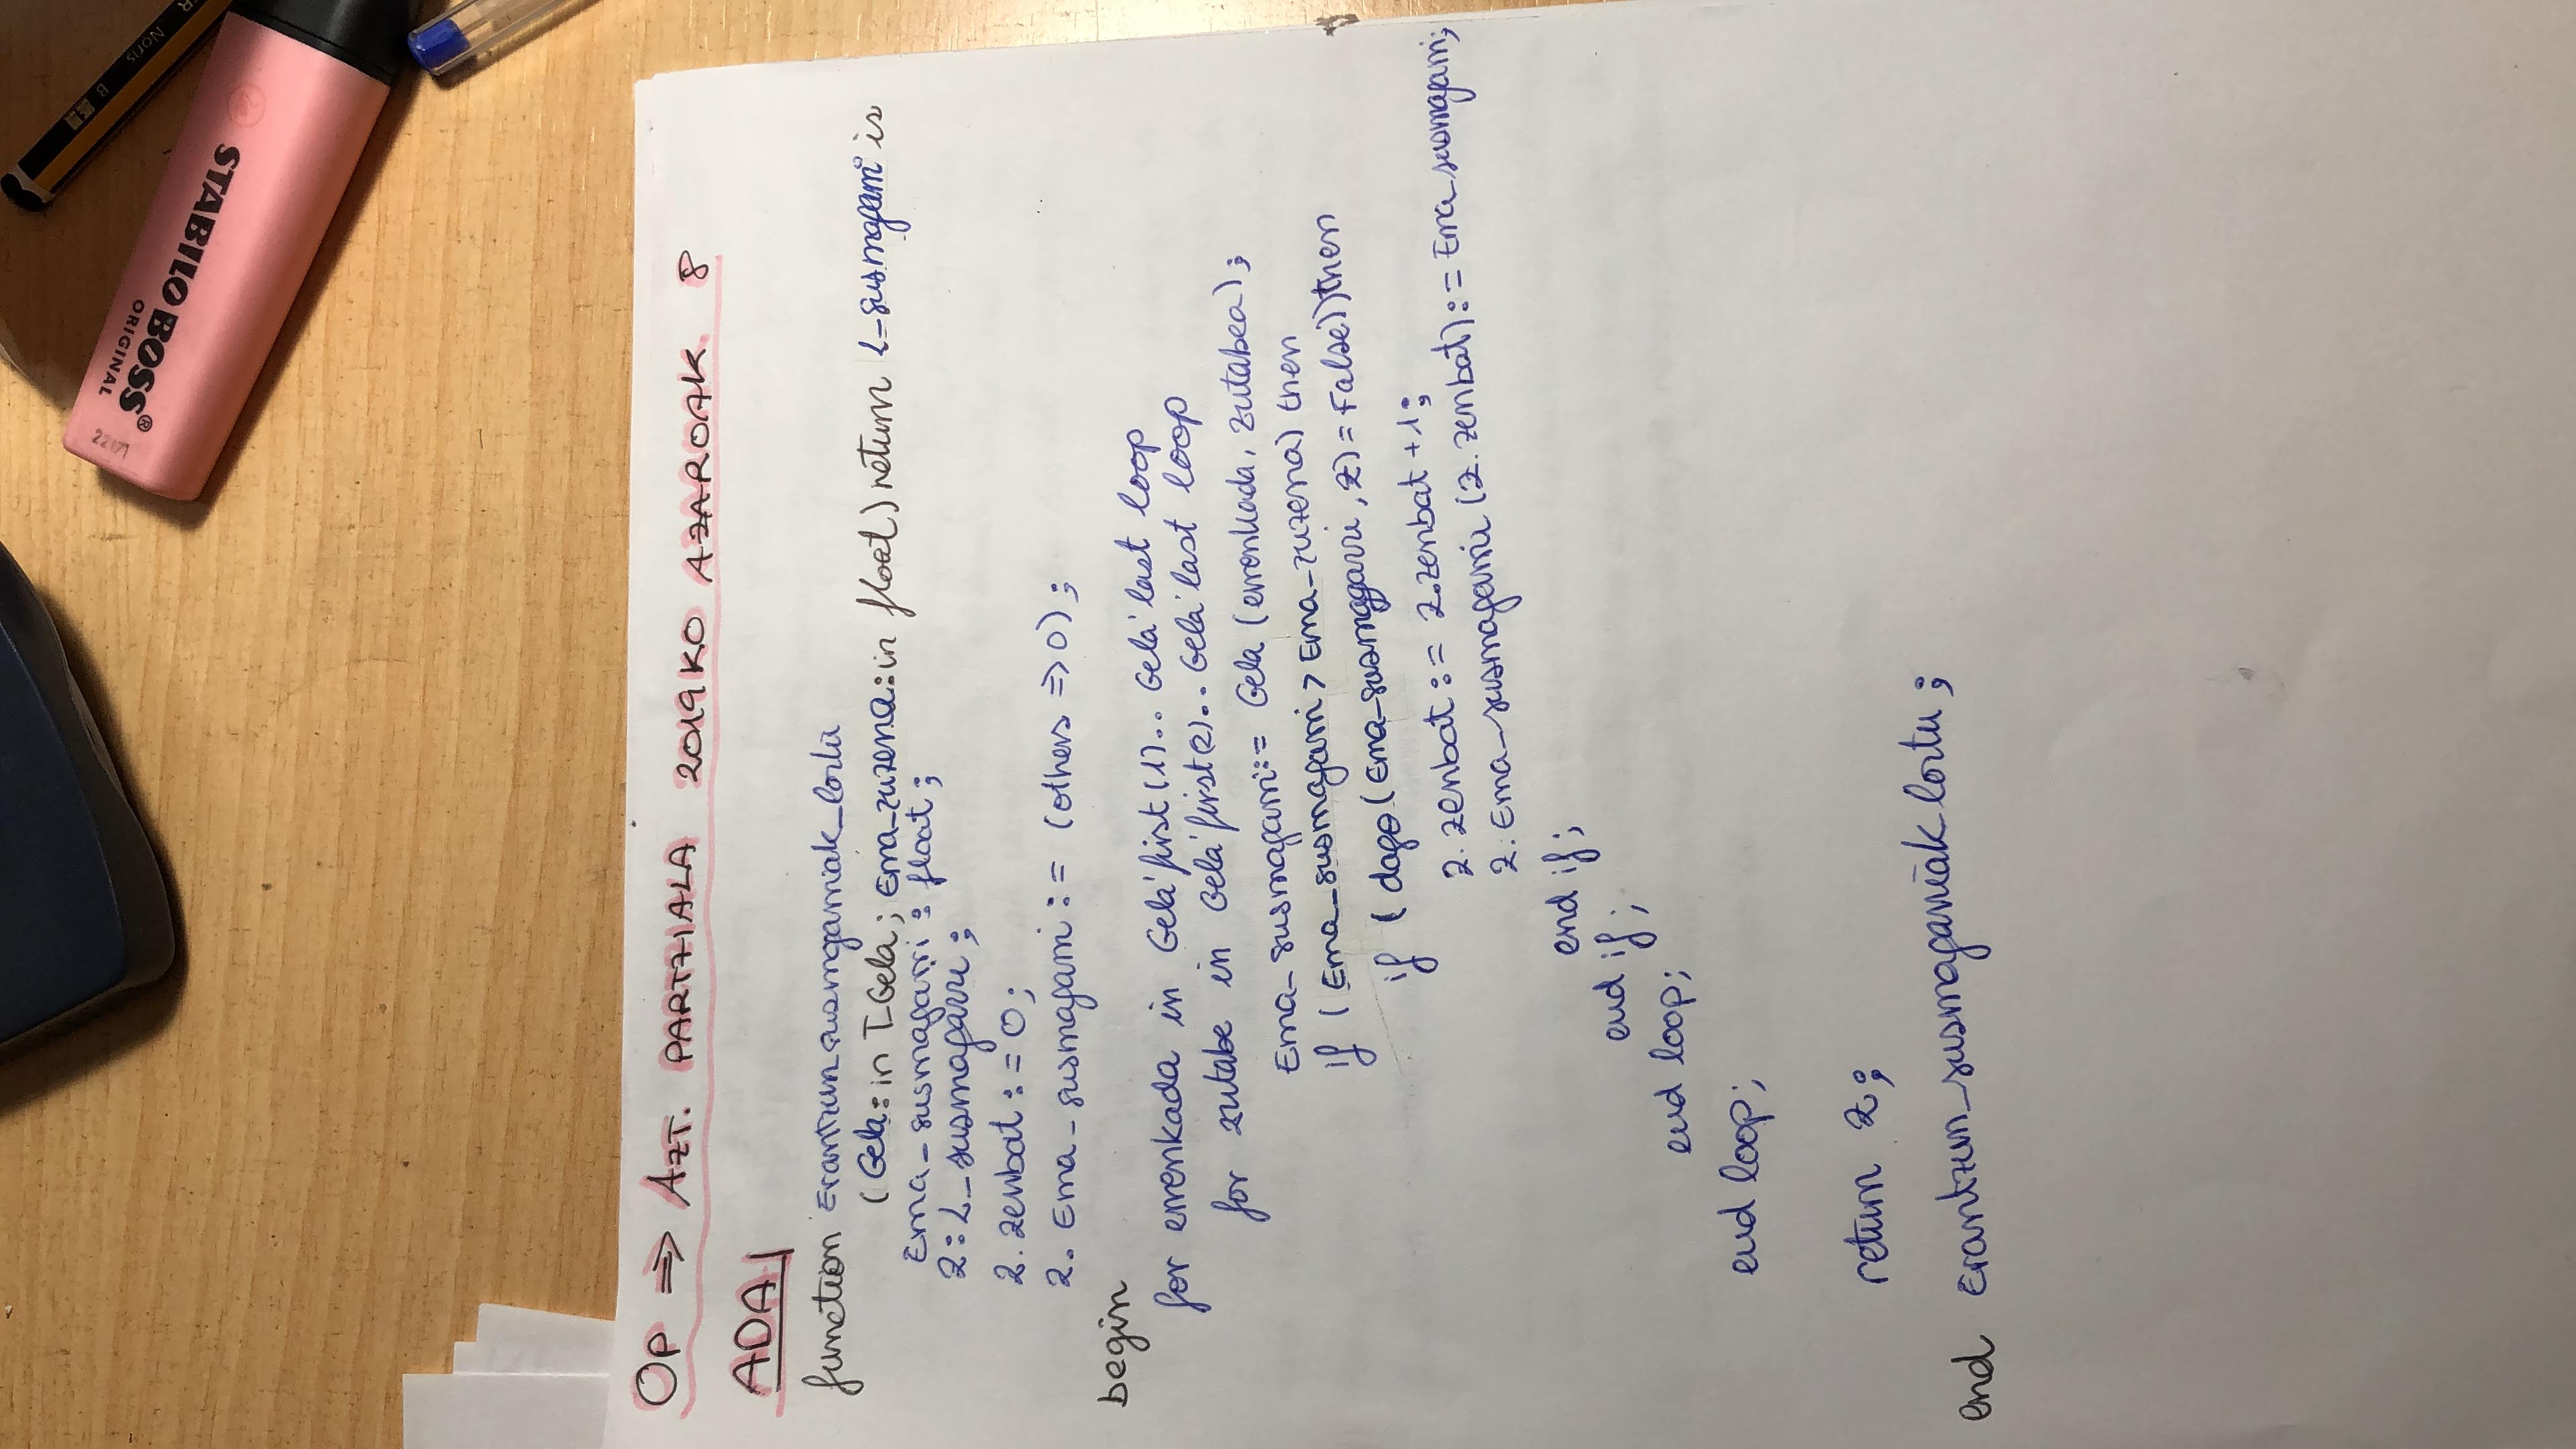 22171
STABILO BOSS®
ORIGINAL
Noris
B
OP ⇒ AZT. PARTZIALA 2019KO AZAROAK 8
ADA
function Erantzun_susmagarriak_lortu
(Gela: in T_Gela; Ema_zuzena: in float) return L_susmagarri is
Ema_susmagarri : float;
Z: L_susmagarri;
Z.zenbat := 0;
Z. Ema_susmagarri := (others => 0);
begin
for errenkada in Gela'first(1).. Gela'last loop
for zutabe in Gela'first(2).. Gela'last loop
Ema_susmagarri := Gela (errenkada, zutabea);
if (Ema_susmagarri > Ema_zuzena) then
if (dago(Ema_susmagarri, Z) = False)) then
Z.zenbat := Z.zenbat + 1;
Z. Ema_susmagarri (Z.zenbat) := Ema_susmagarri;
end if;
end if;
end loop;
end loop;
return Z;
end Erantzun_susmagarriak lortu;